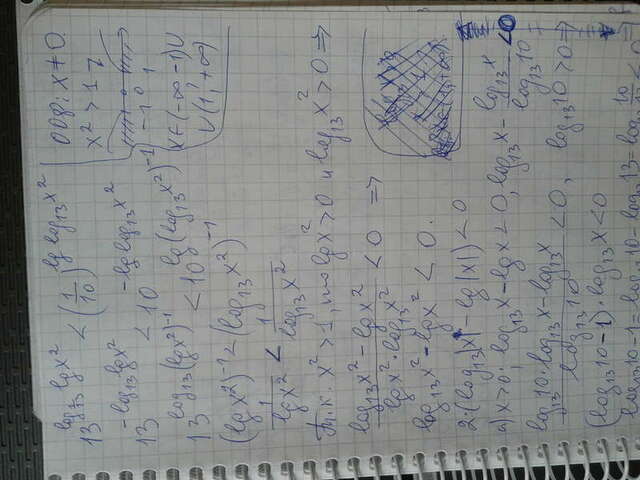 13^{log_{1/13} lg x²} < (1/10)^{lg log_{13} x²}
ООФ: x ≠ 0
x² > 1
-1 0 1
x ∈ (-∞ -1) ∪
∪ (1; +∞)
13^{-log_{13} lg x²} < 10^{-lg log_{13} x²}
13^{log_{13} (lg x²)^{-1}} < 10^{lg (log_{13} x²)^{-1}}
(lg x²)^{-1} < (log_{13} x²)^{-1}
1/lg x² < 1/log_{13} x²
Т.к. x² > 1, то lg x² > 0 и log_{13} x² > 0 ⇒
(log_{13} x² - lg x²)/(lg x² · log_{13} x²) < 0 ⇒
log_{13} x² - lg x² < 0.
2·(log_{13} |x| - lg |x|) < 0
а) x > 0; log_{13} x - lg x < 0, log_{13} x - log_{13} x / log_{13} 10 < 0
(log_{13} 10 · log_{13} x - log_{13} x)/log_{13} 10 < 0, log_{13} 10 > 0 ⇒
(log_{13} 10 - 1) · log_{13} x < 0
log_{13} 10 - 1 = log_{13} 10 - log_{13} 13 = log_{13} 10/13 < 0 ⇒